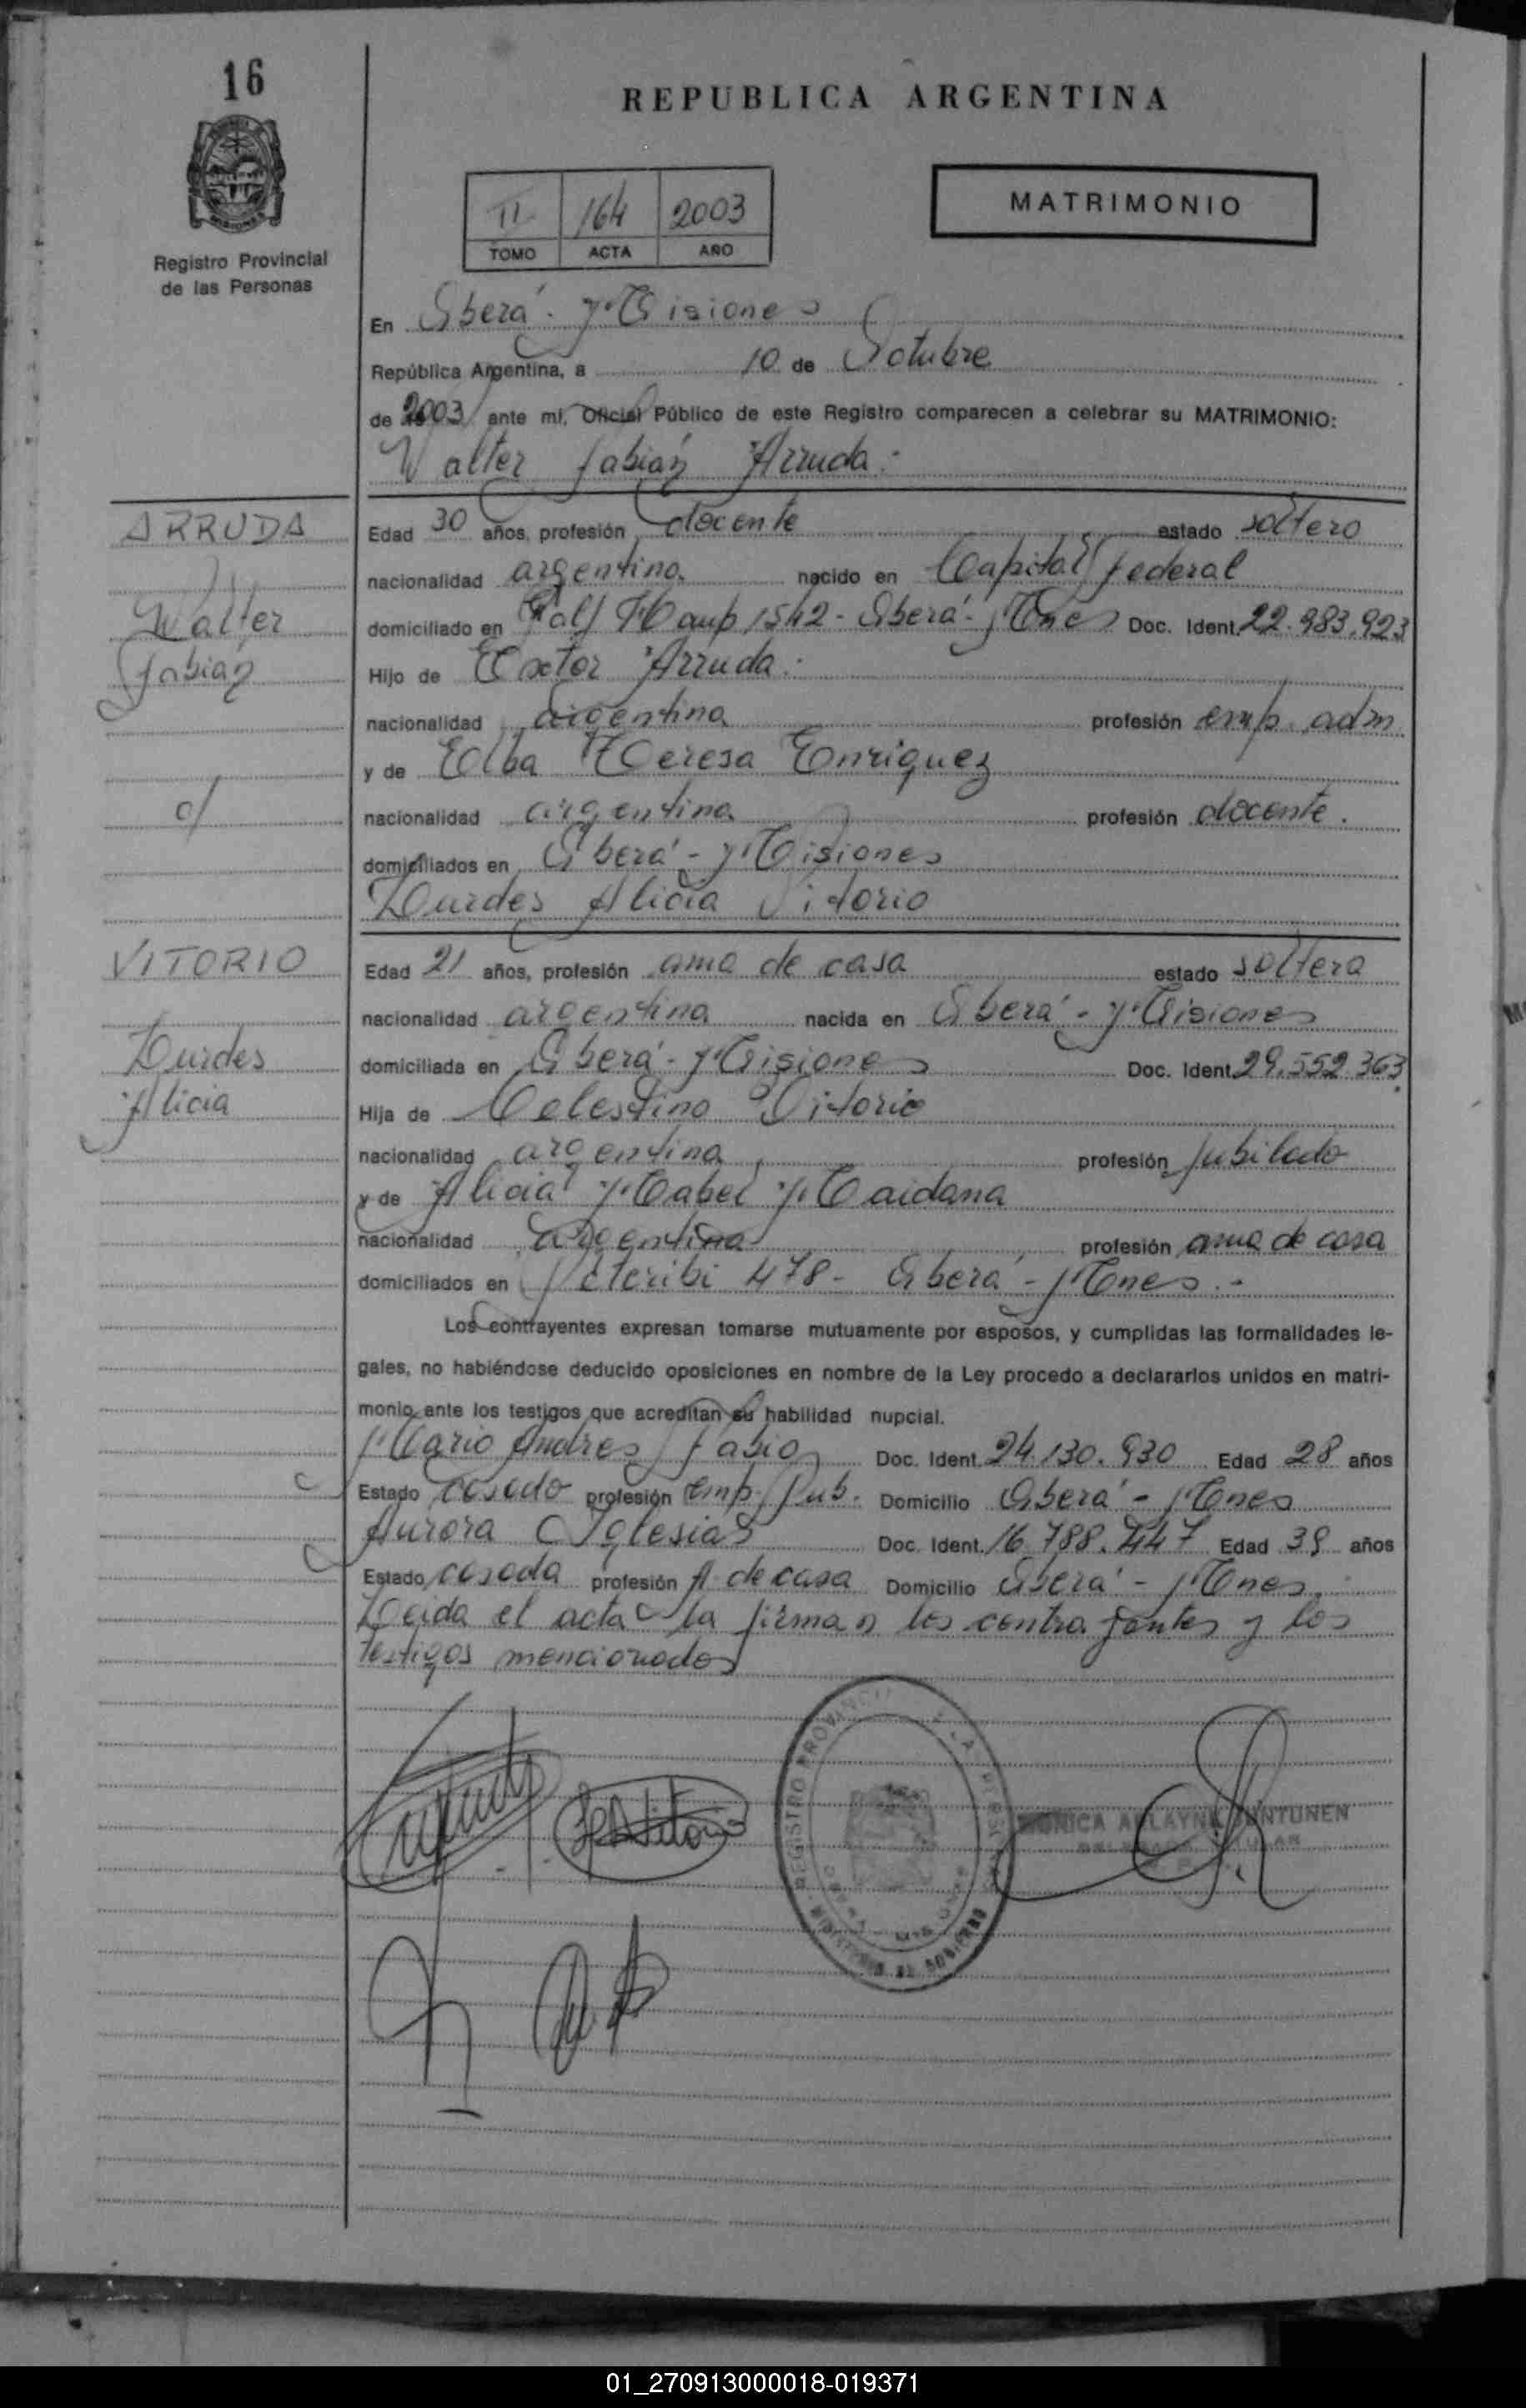 16
REPUBLICA ARGENTINA
II 164 2003
TOMO ACTA AÑO
MATRIMONIO
Registro Provincial
de las Personas
En Oberá - Misiones
República Argentina, a 10 de Octubre
de 2003 ante mi, Oficial Público de este Registro comparecen a celebrar su MATRIMONIO:
Walter Fabián Arruda.-
ARRUDA
Walter
Fabián
c/
Edad 30 años, profesión docente estado soltero
nacionalidad argentina nacido en Capital Federal
domiciliado en 1542 - Oberá - Mnes Doc. Ident. 22.983.923
Hijo de Arruda.-
nacionalidad argentina profesión emp. adm
y de Elba Teresa Enriquez
nacionalidad argentina profesión docente.
domiciliados en Oberá - Misiones
Lourdes Alicia Vitorio
VITORIO
Lourdes
Alicia
Edad 21 años, profesión ama de casa estado soltera
nacionalidad argentina nacida en Oberá - Misiones
domiciliada en Oberá - Misiones Doc. Ident. 29.552.363
Hija de Celestino Vitorio
nacionalidad argentina profesión Jubilado
y de Alicia Mabel Maidana
nacionalidad argentina profesión ama de casa
domiciliados en Peteribi 478 - Oberá - Mnes.-
Los contrayentes expresan tomarse mutuamente por esposos, y cumplidas las formalidades le-
gales, no habiéndose deducido oposiciones en nombre de la Ley procedo a declararlos unidos en matri-
monio ante los testigos que acreditan su habilidad nupcial.
Mario Andres Fabio Doc. Ident. 24.130.930 Edad 28 años
Estado casado profesión emp. Pub. Domicilio Oberá - Mnes
Aurora Iglesias Doc. Ident. 16.788.447 Edad 39 años
Estado casada profesión A de casa Domicilio Oberá - Mnes.
Leida el acta la firman los contrayentes y los
testigos mencionados
REGISTRO PROVINCIAL
MINISTERIO DE GOBIERNO
01_270913000018-019371